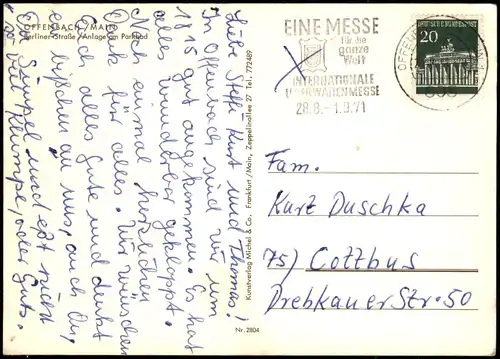 OFFENBACH / MAIN
Berliner-Straße / Anlage am Parkbad
Liebe Steffi Kurt und Thomas!
In Offenbach sind wir um
18¹⁵ gut angekommen. Es hat
alles wunderbar geklappt.
Noch einmal herzlichen
Dank für alles. Wir wünschen
Euch alles Gute und denkt
ein bißchen an uns, auch Du,
Stümpel und eßt nicht
so viel Klümpe, oder Guts.
Kunstverlag Michel & Co. Frankfurt/Main, Zeppelinallee 27 Tel. 772489
Nr. 2804
EINE MESSE
für die
ganze
Welt
INTERNATIONALE
LEDERWARENMESSE
28.8.-1.9.71
OFFENBACH
605
DEUTSCHE BUNDESPOST
20
Fam.
Kurt Duschka
75) Cottbus
Drebkauer Str. 50